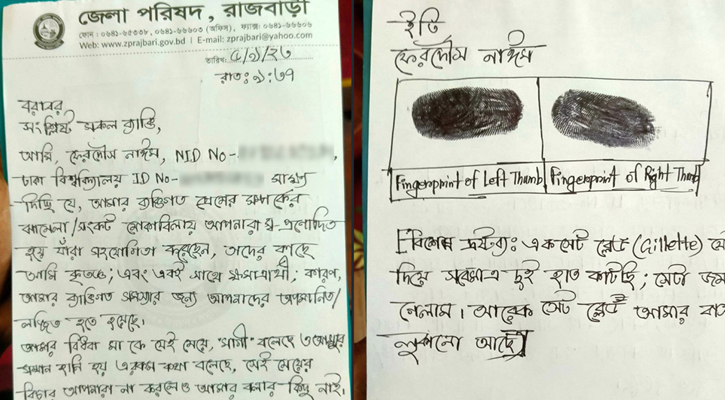 জেলা পরিষদ, রাজবাড়ী
ফোন : ০৬৪১-৬৫৩৩৮, ০৬৪১-৬৬৬০৩ (অফিস), ফ্যাক্স: ০৬৪১-৬৬৬০৬
Web: www.zprajbari.gov.bd | E-mail: zprajbari@yahoo.com
তারিখ: ৫/৯/২৩
রাত: ৯:৩৭
বরাবর
সংশ্লিষ্ট সকল ব্যক্তি,
আমি, ফেরদৌস নাঈম, NID No-
ঢাকা বিশ্ববিদ্যালয় ID No- সাক্ষ্য
দিচ্ছি যে, আমার ব্যক্তিগত প্রেমের সম্পর্কের
ঝামেলা/সংকট মোকাবিলায় আপনারা স্ব-প্রণোদিত
হয়ে যাঁরা সহযোগিতা করেছেন, তাদের কাছে
আমি কৃতজ্ঞ; এবং একই সাথে ক্ষমাপ্রার্থী; কারণ,
আমার ব্যক্তিগত সমস্যার জন্য আপনাদের অপমানিত/
লজ্জিত হতে হয়েছে।
আমার বিধবা মা কে যেই মেয়ে, "মাগী" বলেছে ও আম্মুর
সম্মান হানি হয় এরকম কথা বলেছে, সেই মেয়ের
বিচার আপনারা না করলেও আমার বলার কিছু নাই।
ইতি
ফেরদৌস নাঈম
Fingerprint of Left Thumb
Fingerprint of Right Thumb
[বিশেষ দ্রষ্টব্য: এক সেট ব্লেড (Gillette)
দিয়ে সবেমাত্র দুই হাত কাটছি; সেটা
গেলাম। আরেক সেট ব্লেড আমার
লুকানো আছে]